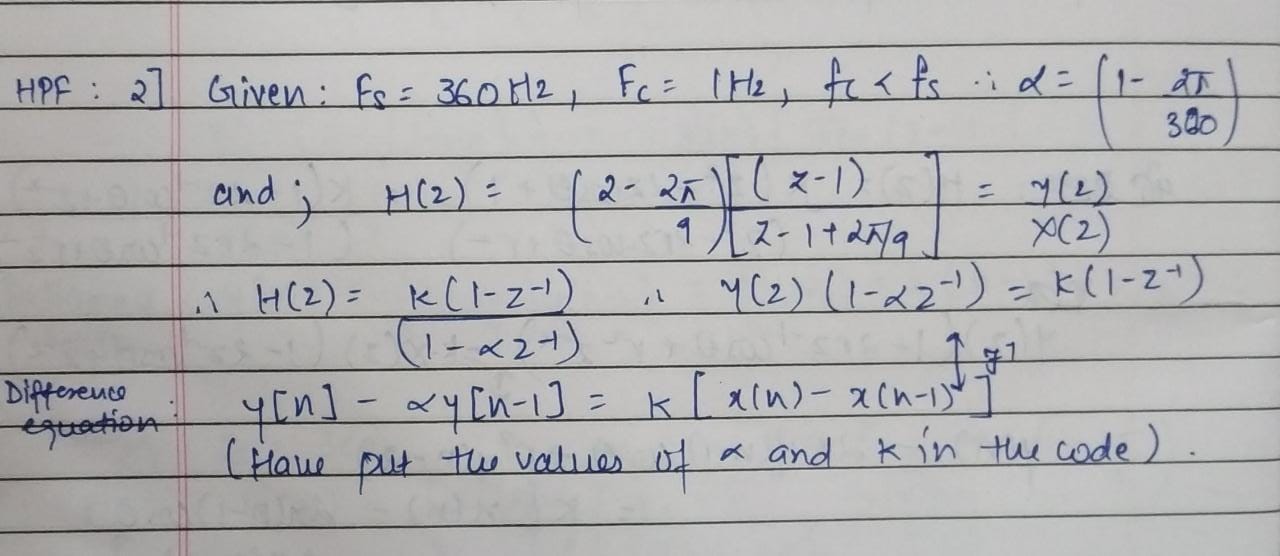 HPF : 2] Given: Fs = 360 Hz, Fc = 1Hz, fc < fs ∴ α = (1 - 2π/360)
and ; H(z) = (2 - 2π/9) [(z-1) / (z - 1 + 2π/9)] = Y(z)/X(z)
∴ H(z) = K(1-z⁻¹) / (1-αz⁻¹) ∴ Y(z) (1-αz⁻¹) = K(1-z⁻¹)
Difference equation : y[n] - αy[n-1] = K [x(n) - x(n-1)]
(Have put the values of α and K in the code).